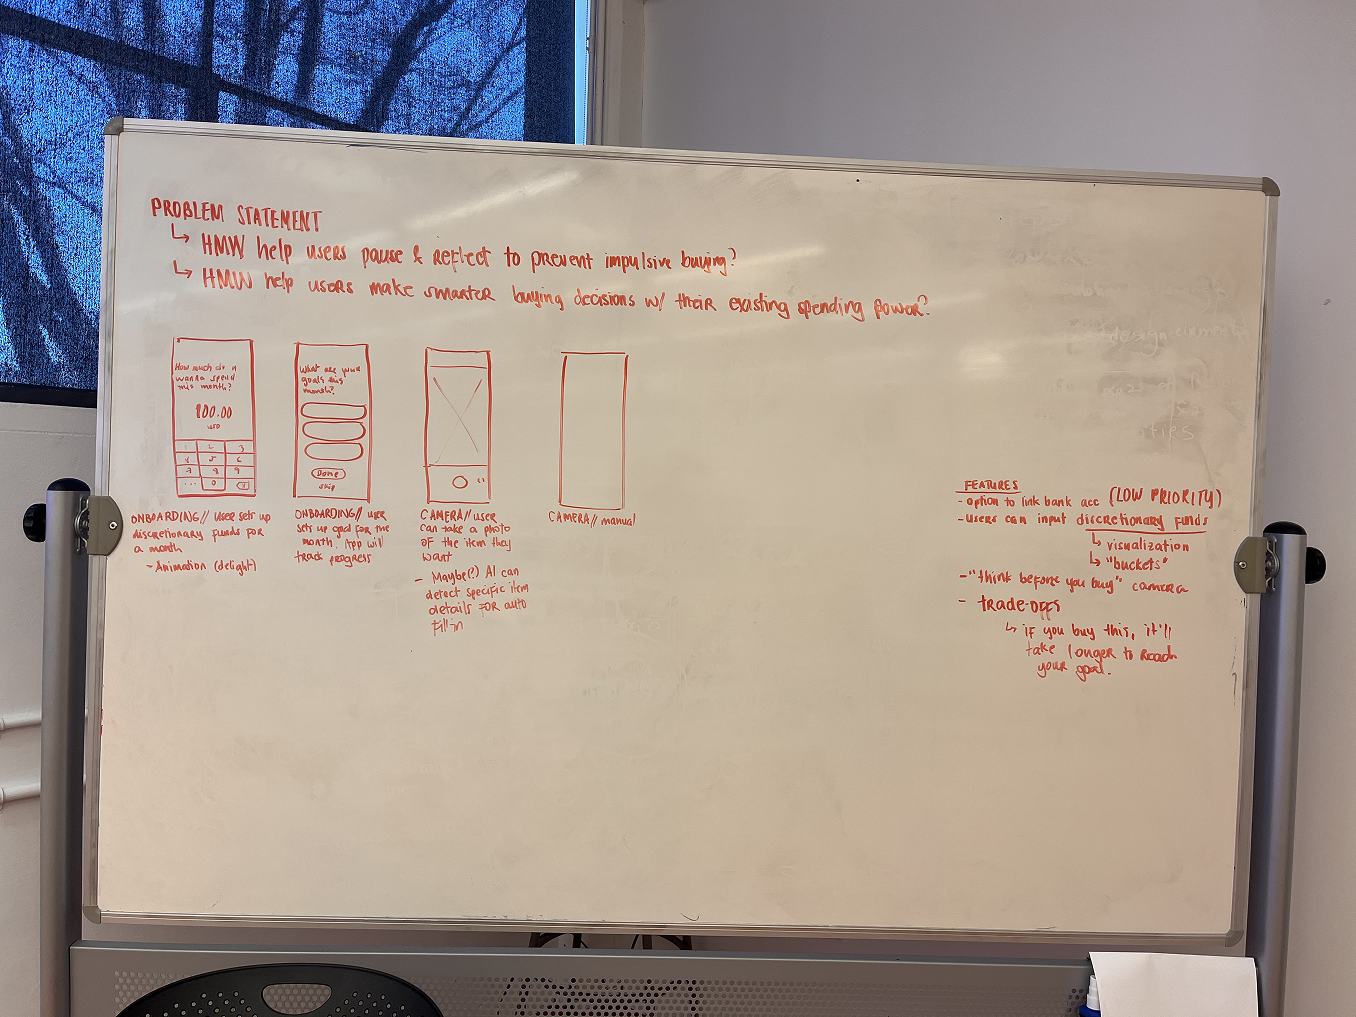 PROBLEM STATEMENT
↳ HMW help users pause & reflect to prevent impulsive buying?
↳ HMW help users make smarter buying decisions w/ their existing spending power?
How much do u
wanna spend
this month?
100.00
USD
1 2 3
4 5 6
7 8 9
... 0
ONBOARDING// user sets up
discretionary funds for
a month
- Animation (delight)
What are your
goals this
month?
Done
skip
ONBOARDING// user
sets up goal for the
month. App will
track progress
CAMERA// user
can take a photo
of the item they
want
- Maybe(?) AI can
detect specific item
details for auto
fill-in
CAMERA// manual
FEATURES
- option to link bank acc (LOW PRIORITY)
- users can input discretionary funds
↳ visualization
↳ "buckets"
- "think before you buy" camera
- trade-offs
↳ if you buy this, it'll
take longer to reach
your goal.
design elements